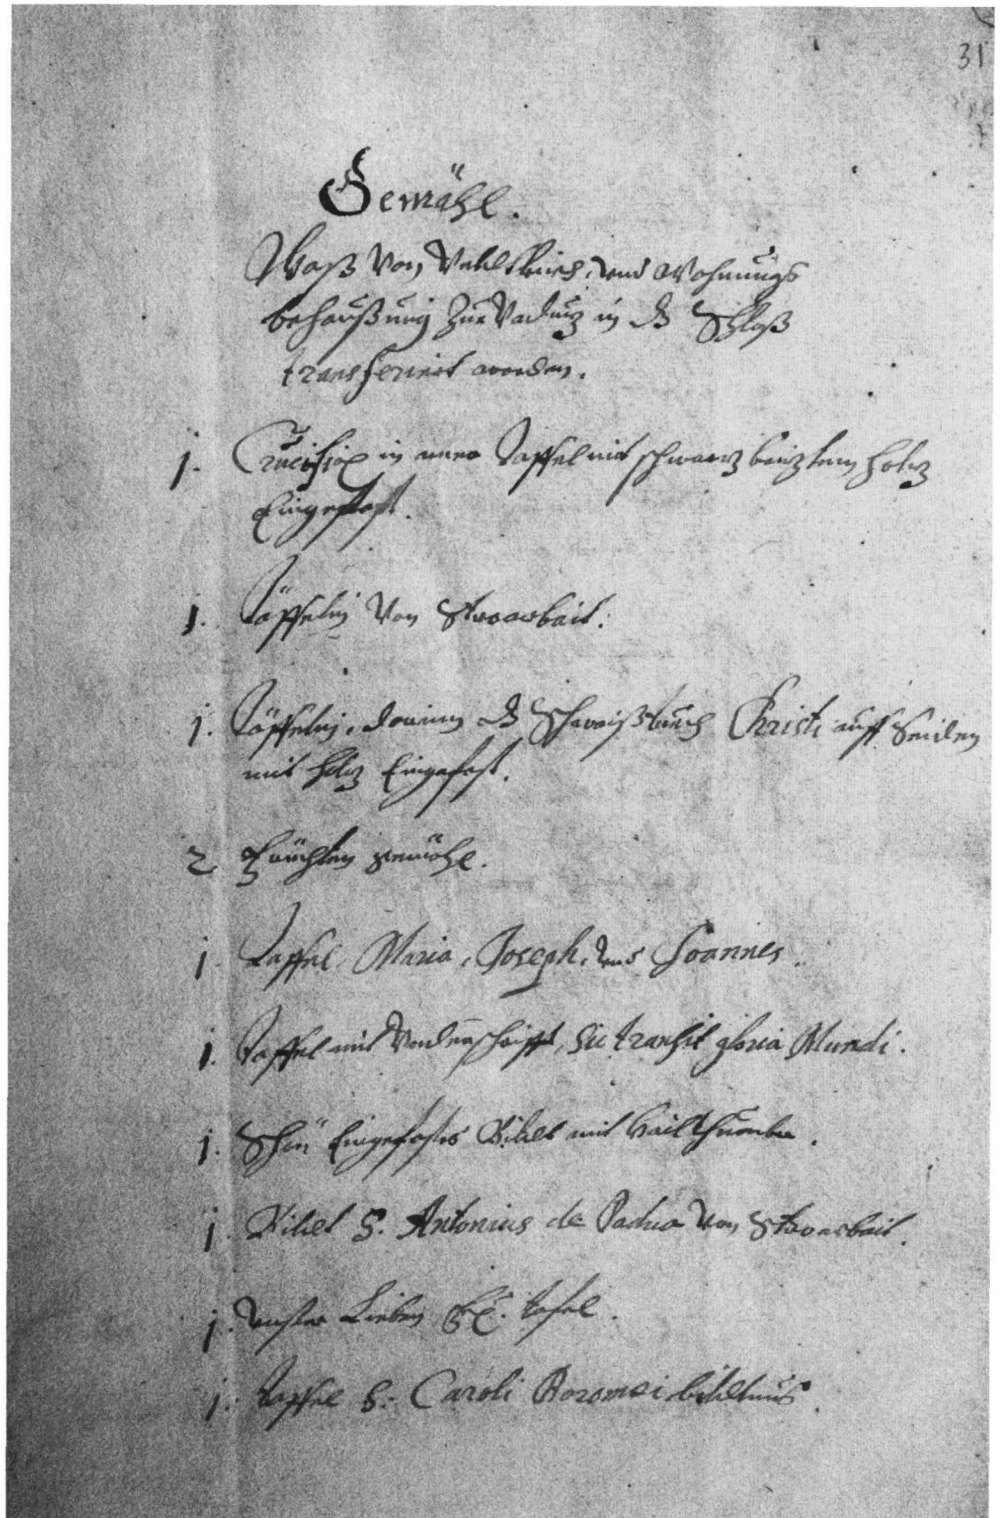 31
Gemähl.
Waß von Veldtkirch, vnd Wohnungs
behaußung zue Vaduz in dz Schloß
transferiert worden.
1. Crucifix in einer Taffel mit schwarz baiztem holz
Eingefast.
1. Täffelin von Stroarbait.
1. Täffelin, darinn dz Schwaißtuech Christi auff Seiden
mit holz Eingefast.
2 Früchten gemähl.
1 Taffel Maria, Joseph, vnd Joannes.
1. Taffel mit Vnderschrifft, Sic transit gloria Mundi.
1. Schön Eingefastes Bildt mit hailthumben.
1 Bildt S. Antonius de Padua von Stroarbait.
1. Vnser Lieben tafel.
1. Taffel S. Caroli Boromei bildtnus.